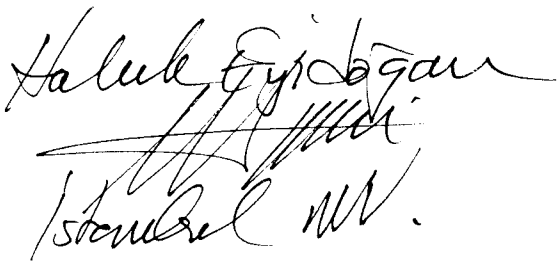 Haluk Eyidoğan
İstanbul MV.